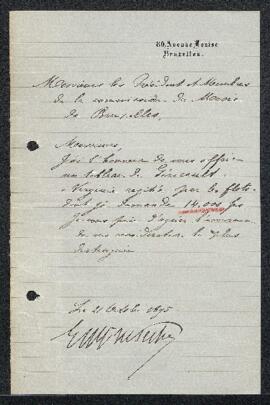 80, Avenue Louise
Bruxelles.
Messieurs les Président et Membres
de la commission du Musée
de Bruxelles,
Messieurs,
J'ai l'honneur de vous offrir
un tableau de
dont je demande 14,000 frs
Je vous prie d'agréer l'assurance
de ma considération la plus
distinguée
Le 21 Octobre 1895